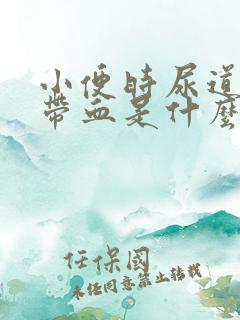 小便時尿道
帶血是什麼
任保國
未经同意禁止转载